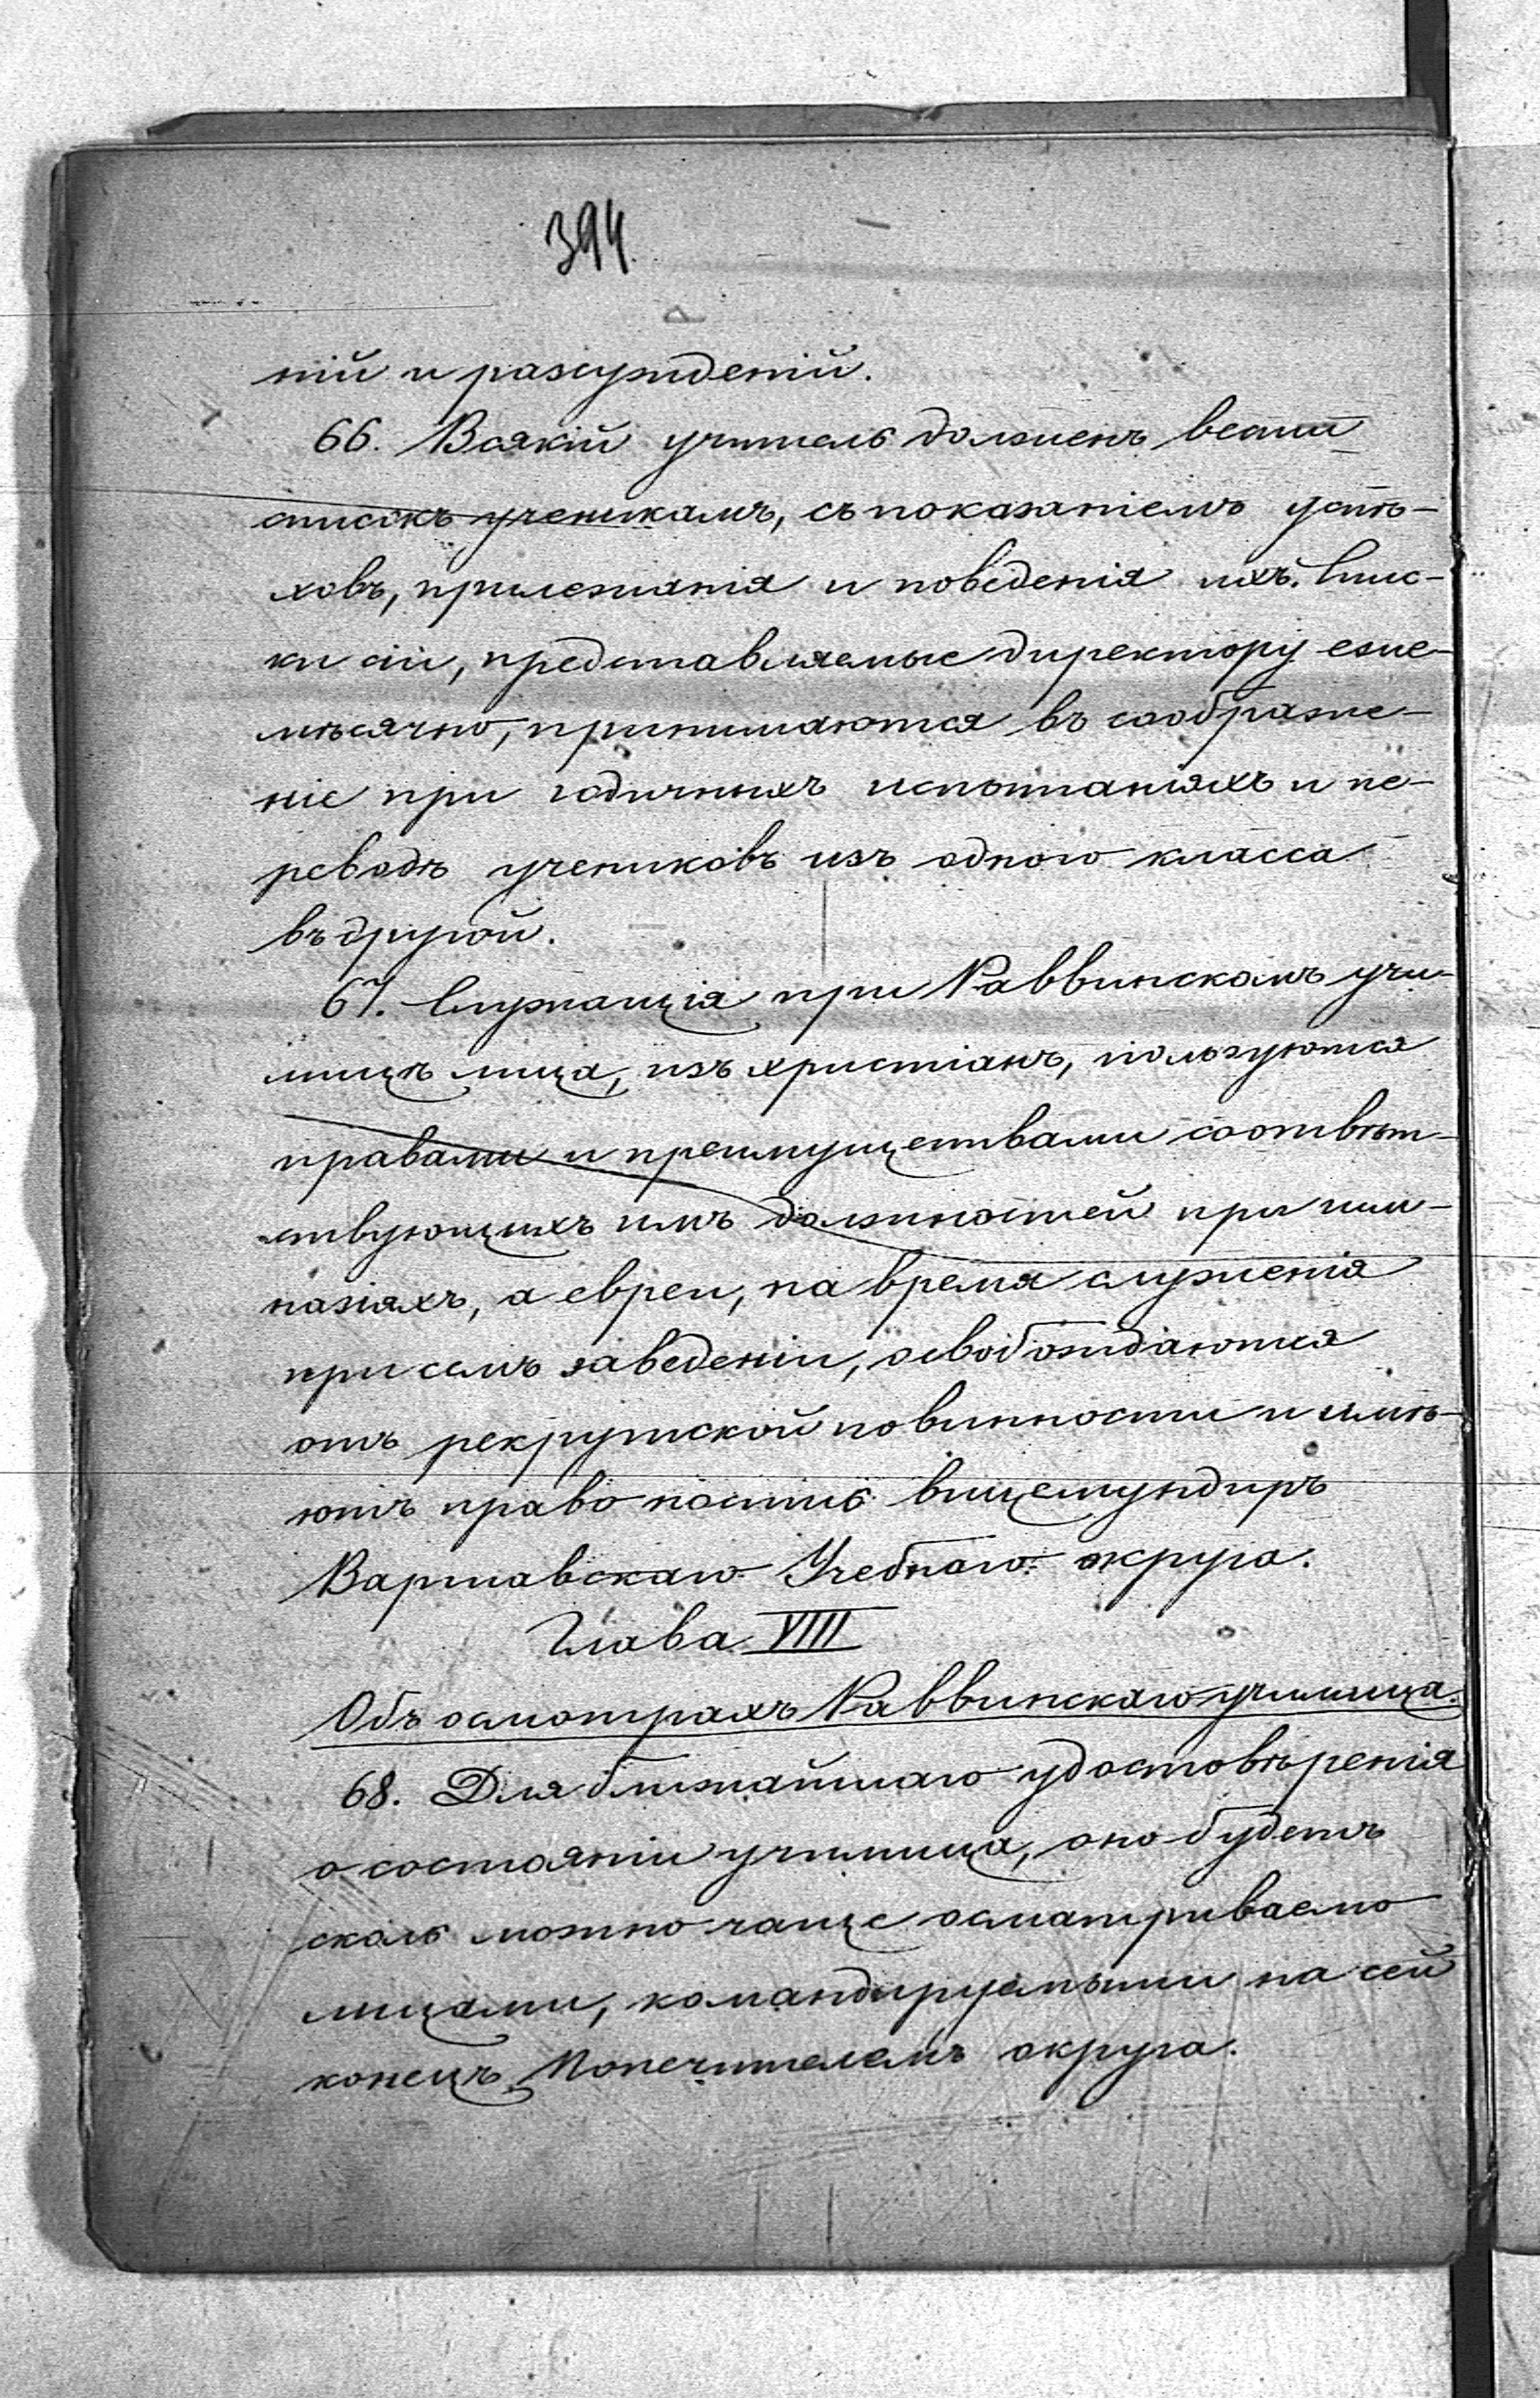 394.
ній и разсужденій.
66. Всякій учитель долженъ вести
списокъ ученикамъ, съ показаніемъ успѣ-
ховъ, прилежанія и поведенія ихъ. Спис-
ки сіи, представляемые директору еже-
мѣсячно, принимаются въ соображе-
ніе при годичныхъ испытаніяхъ и пе-
реводѣ учениковъ изъ одного класса
въ другой.
67. Служащія при Раввинскомъ учи-
лищѣ лица, изъ христіанъ, пользуются
правами и преимуществами соотвѣт-
ствующихъ имъ должностей при гим-
назіяхъ, а евреи, на время служенія
при семъ заведеніи, освобождаются
отъ рекрутской повинности и имѣ-
ютъ право носить вицемундиръ
Варшавскаго Учебнаго округа.
Глава VIII
Объ осмотрахъ Раввинскаго училища.
68. Для ближайшаго удостовѣренія
о состояніи училища, оно будетъ
сколь можно чаще осматриваемо
лицами, командируемыми на сей
конецъ Попечителемъ округа.